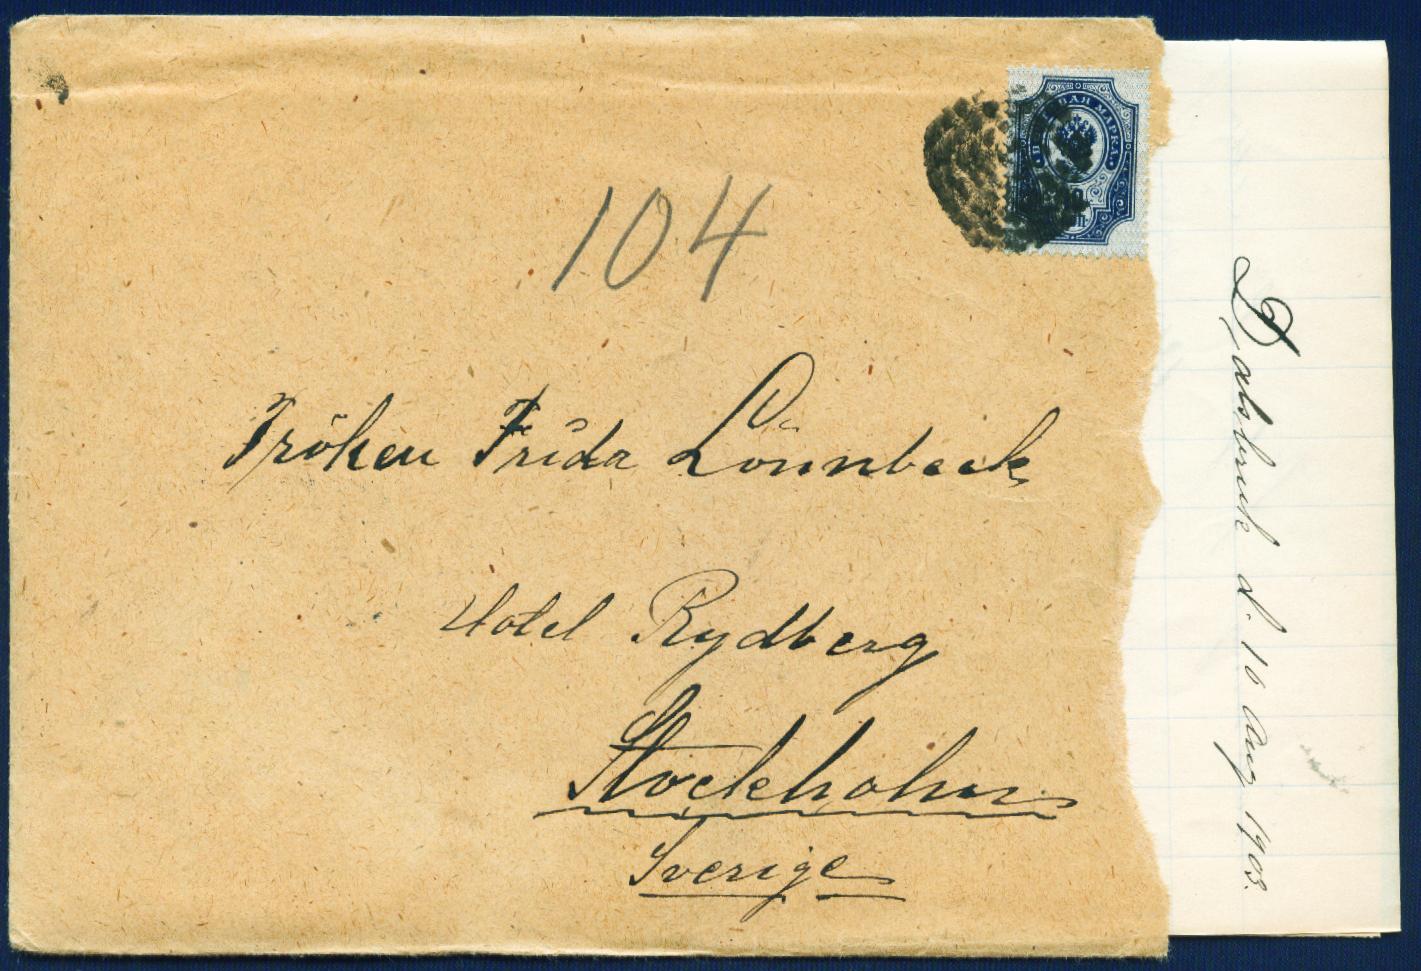 104
Fröken Frida Lönnbeck
Hotel Rydberg
Stockholm
Sverige
МАРКА
Dalsbruk d. 10 Aug 1903.